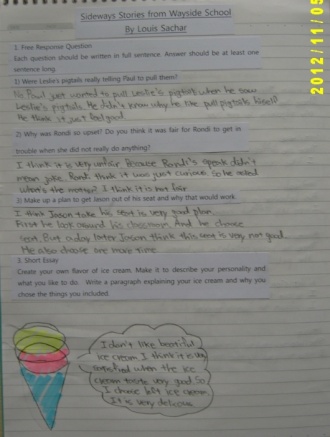 Sideways Stories from Wayside School
By Louis Sachar
1. Free Response Question
Each question should be written in full sentence. Answer should be at least one
sentence long.
1) Were Leslie's pigtails really telling Paul to pull them?
No Paul just wanted to pull Leslie's pigtail when he saw
Leslie's pigtails. He didn't know why he like pull pigtails
He think it just feel good.
2) Why was Rondi so upset? Do you think it was fair for Rondi to get in
trouble when she did not really do anything?
I think it is very unfair Because Rondi's speak didn't
mean joke. Rondi think it was just curious So he asked
what's the matter? I think it is not fair
3) Make up a plan to get Jason out of his seat and why that would work.
I think Jason take his seat is very good plan.
First he look around his classroom And he choose
seat. But a day later Jason think this seat is very not good.
He also choose one more time
3. Short Essay
Create your own flavor of ice cream. Make it to describe your personality and
what you like to do. Write a paragraph explaining your ice cream and why you
chose the things you included.
I don't like beautiful
ice cream I think it is
when the ice
cream taste very good. So
I choose left ice cream
It is very delicious
2012/11/05